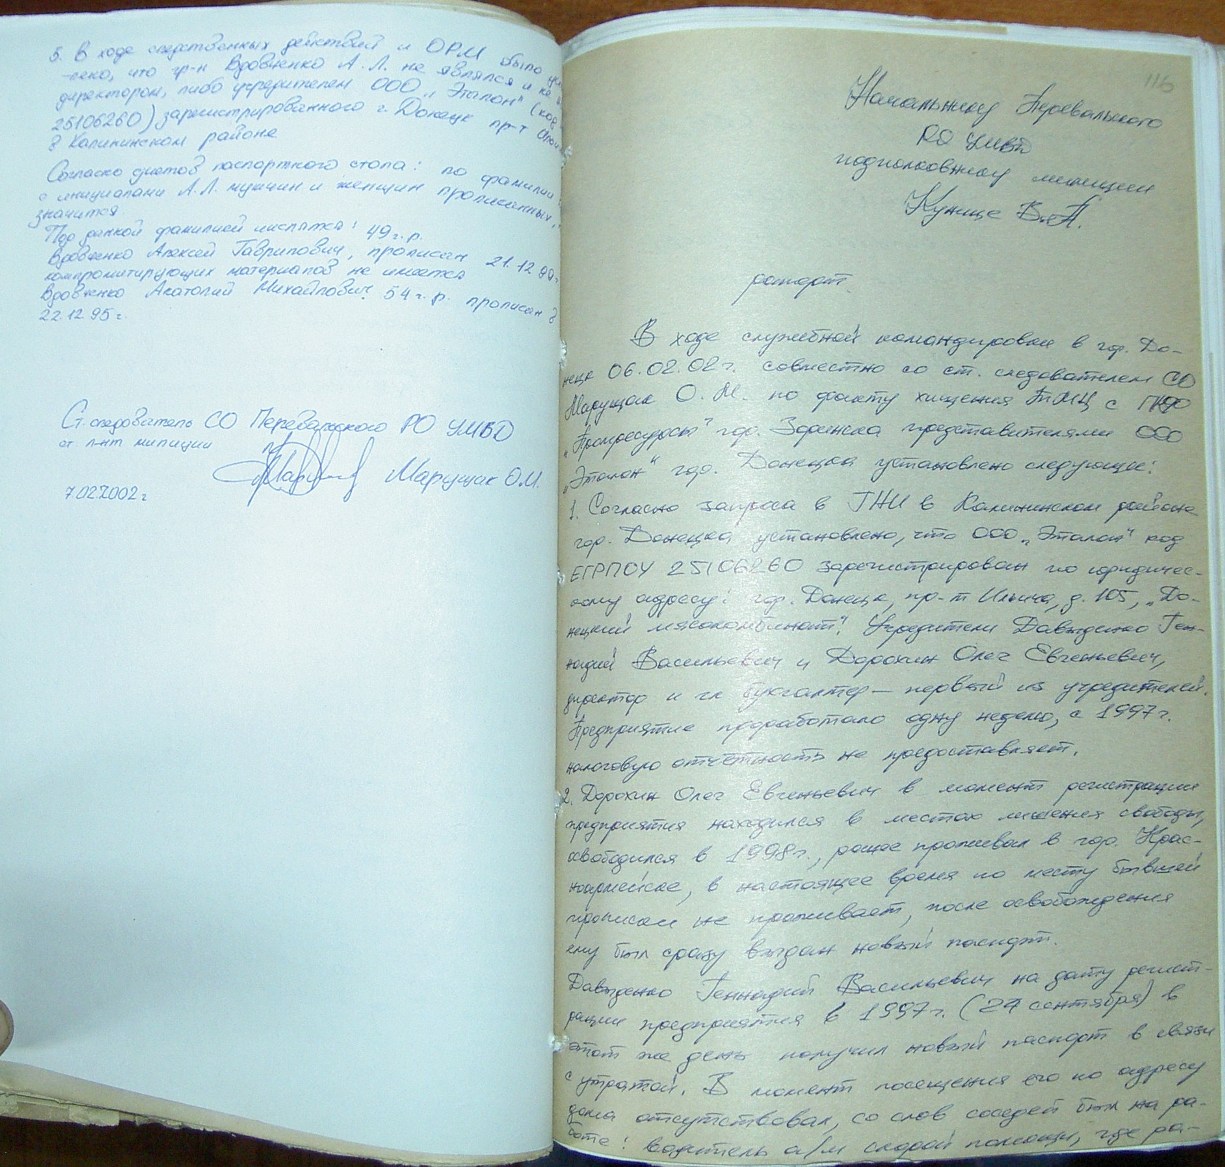 5. В ходе следственных действий и ОРМ было
что гр-н Вдовченко А.Л. не являлся и не
директором, либо учредителем ООО „Эталон" (код
25106260) зарегистрированного г. Донецк пр-т
в Калининском районе
Согласно учетов паспортного стола: по фамилии
с инициалами А.Л. мужчин и женщин прописанных,
значится
Под данной фамилией числятся: 49 г.р.
Вдовченко Алексей Гаврилович, прописан 21.12.99
компрометирующих материалов не имеется
Вдовченко Анатолий Михайлович 54 г.р. прописан в
22.12.95г.
Ст. следователь СО Перевальского РО УМВД
ст. л-нт милиции
Марущак О.М.
7.02.2002г
116
Начальнику Перевальского
РО УМВД
подполковнику милиции
Кунице В.А.
рапорт.
В ходе служебной командировки в гор. До-
нецк 06.02.02г. совместно со ст. следователем СО
Марущак О.М. по факту хищения ТМЦ с
„Промресурсы" гор. Зоринска представителями ООО
„Эталон" гор. Донецка установлено следующее:
1. Согласно запроса в ГНИ в Калининском районе
гор. Донецка установлено, что ООО „Эталон" код
ЕГРПОУ 25106260 зарегистрирован по юридичес-
кому адресу: гор. Донецк, пр-т Ильича, д. 105, „До-
нецкий мясокомбинат". Учредители Давыденко Ген-
надий Васильевич и Дорохин Олег Евгеньевич,
директор и гл. бухгалтер — первый из учредителей.
Предприятие проработало одну неделю, с 1997г.
налоговую отчетность не предоставляет.
2. Дорохин Олег Евгеньевич в момент регистрации
предприятия находился в местах лишения свободы,
освободился в 1998г., ранее проживал в гор. Крас-
ноармейске, в настоящее время по месту бывшей
прописки не проживает, после освобождения
ему был сразу выдан новый паспорт.
Давыденко Геннадий Васильевич на дату регист-
рации предприятия в 1997г. (24 сентября) в
этот же день получил новый паспорт в связи
с утратой. В момент посещения его по адресу
дома отсутствовал, со слов соседей был на ра-
боте: водитель а/м скорой помощи, где ра-